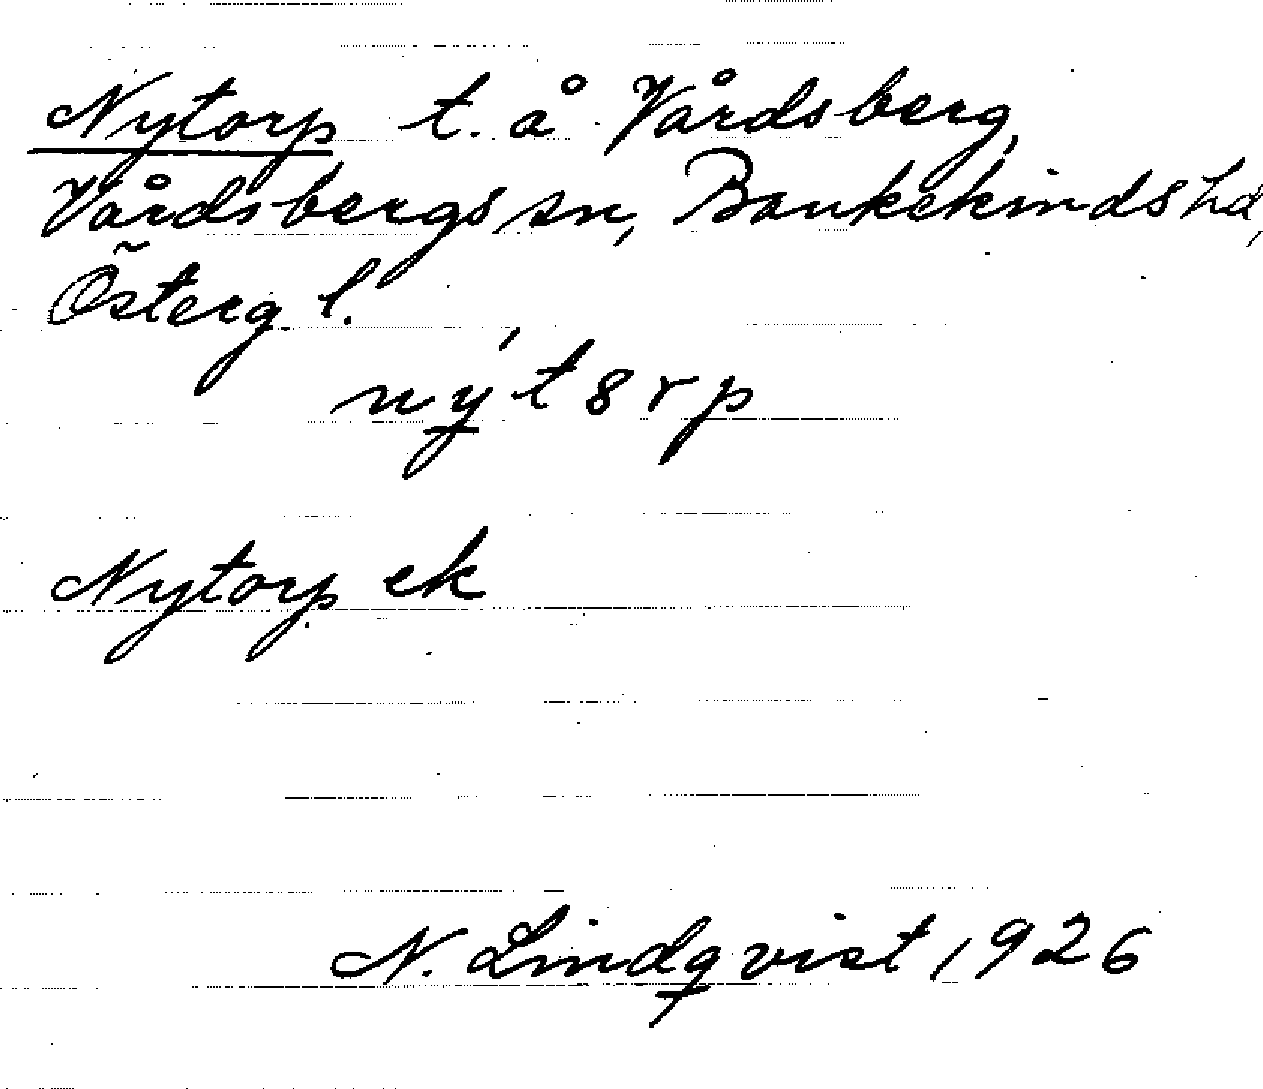 Nytorp t. å Vårdsberg,
Vårdsbergs sn, Bankekinds hd,
Österg. l.
ný̱t8rp
Nytorp ek
N. Lindqvist 1926